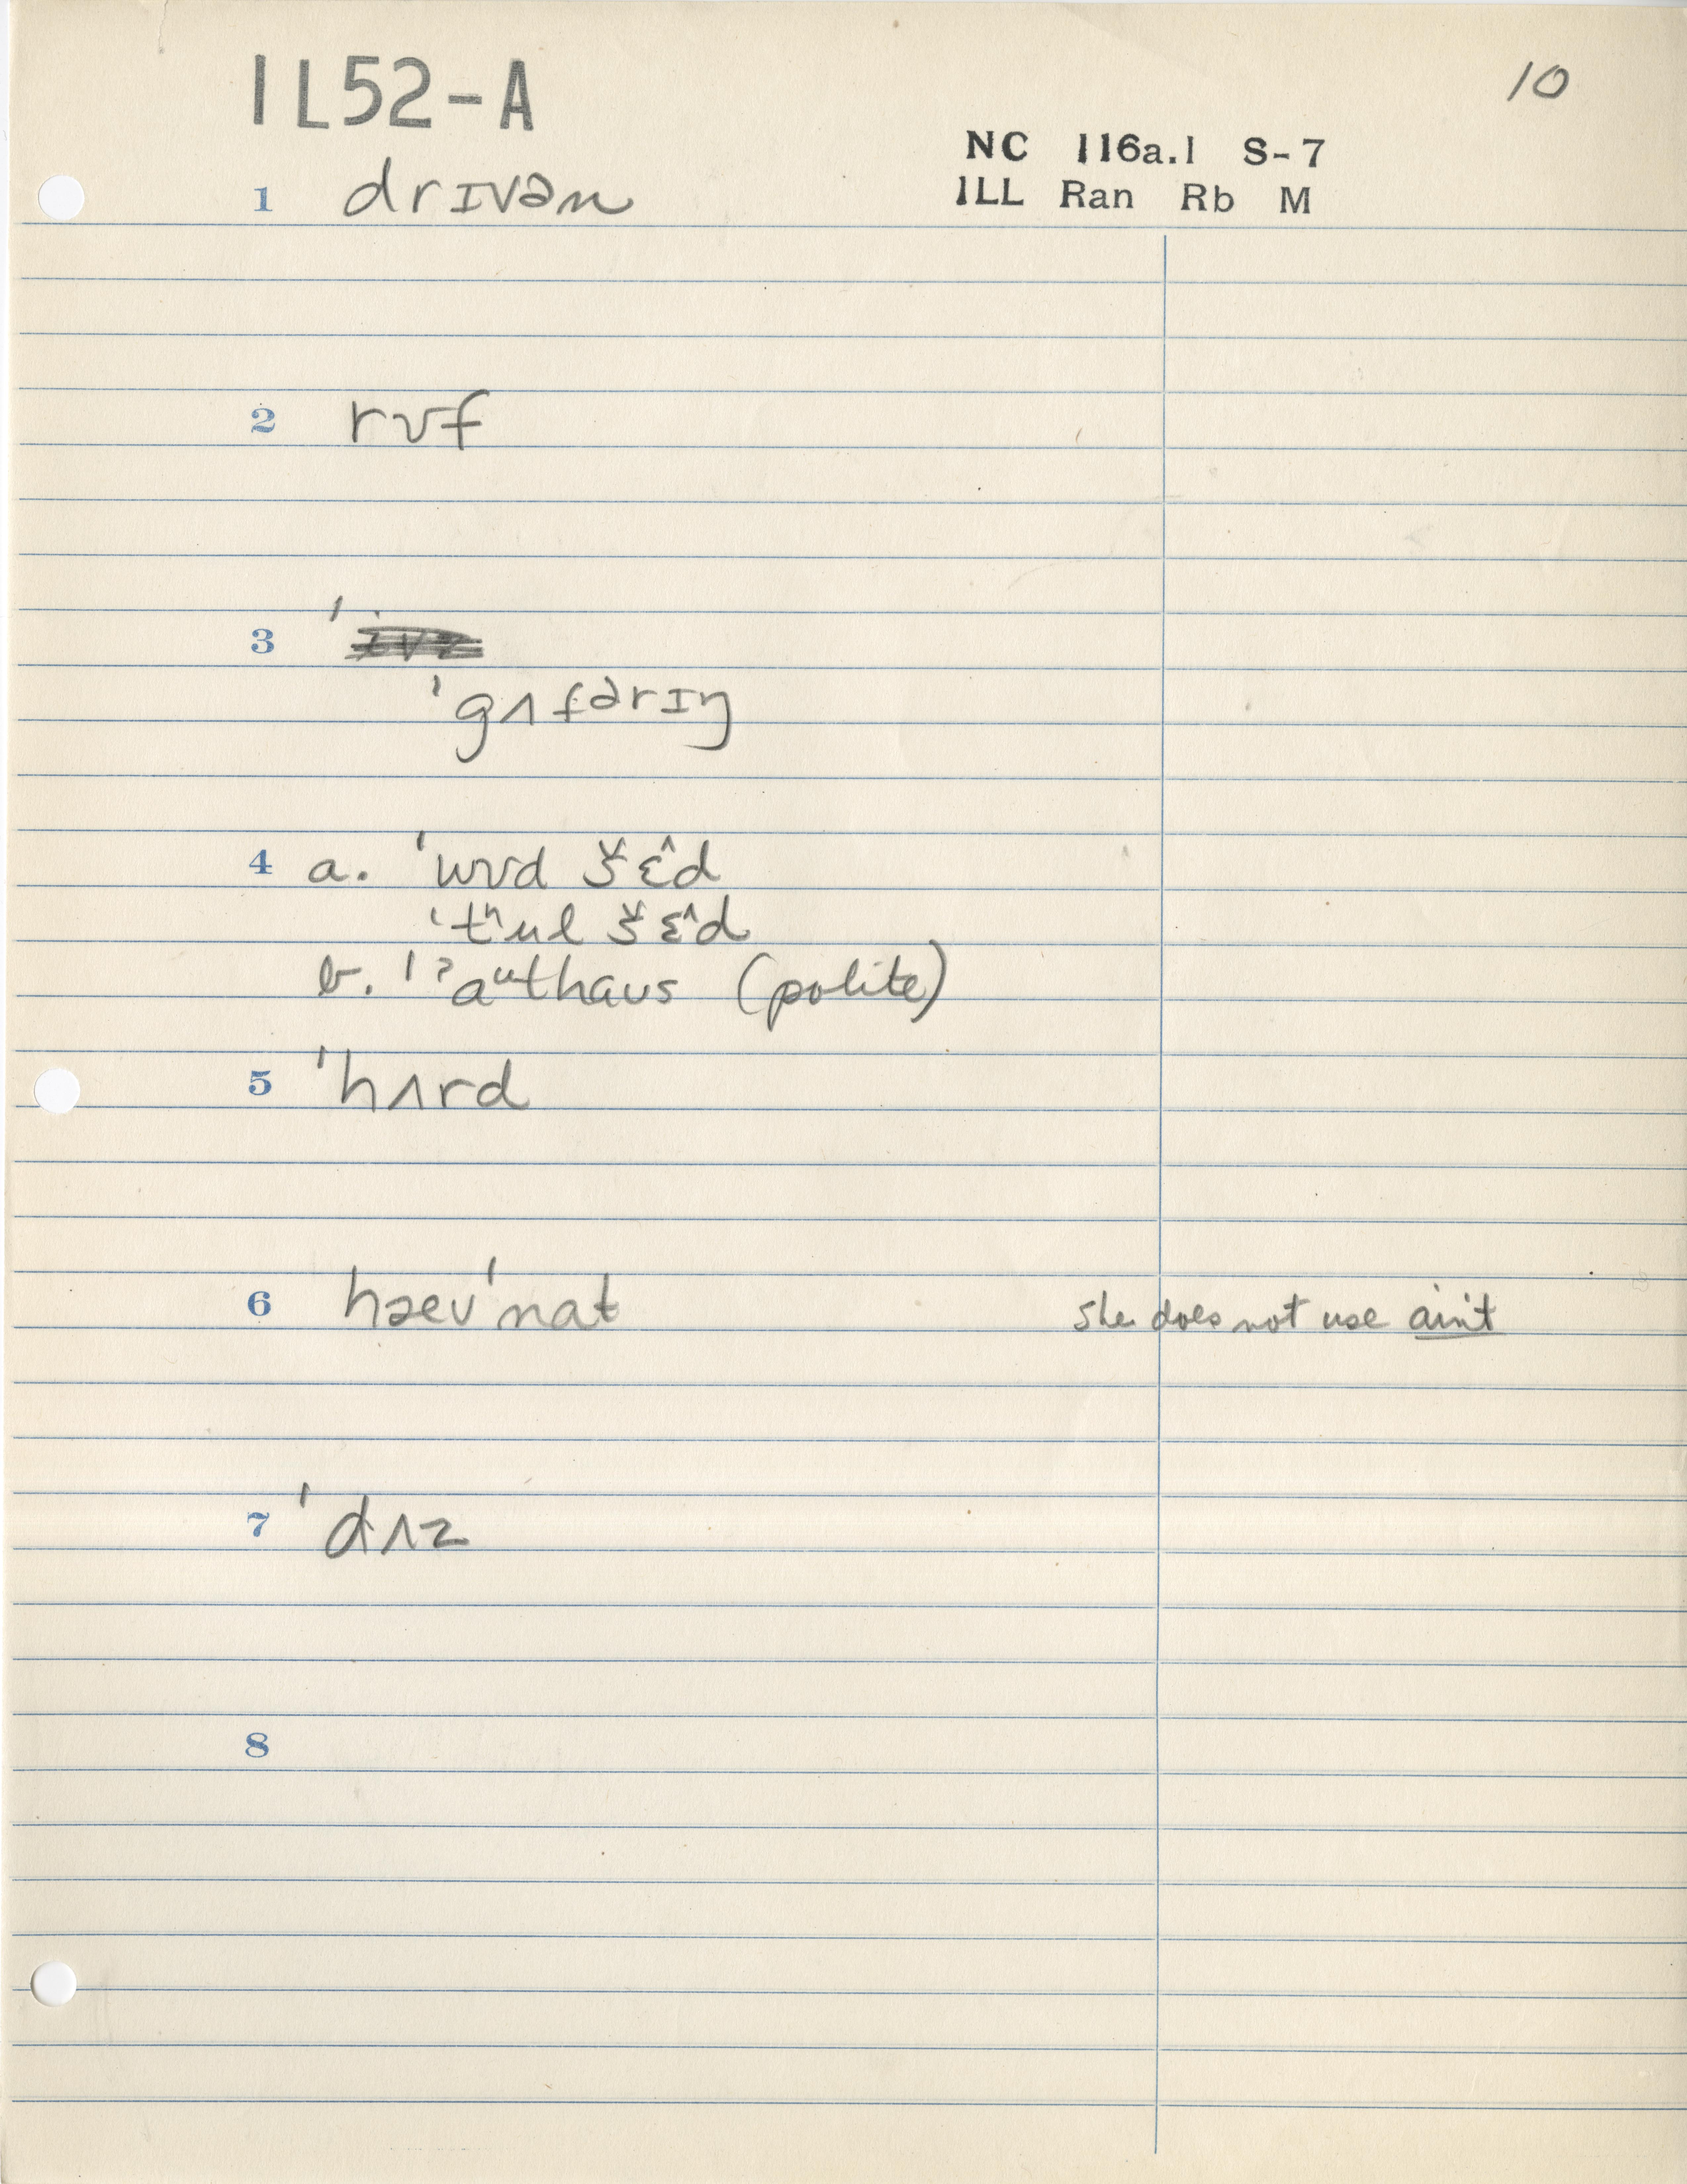 1L52-A
10
NC 116a.1 S-7
ILL Ran Rb M
1 drɪvən
2 rʊf
3
ˈgʌfərɪŋ
4 a. ˈwʊd šɛ^d
ˈtʰul šɛ^d
b. ˈˀaᵘthaus (polite)
5 ˈhʌrd
6 hæevˈnat she does not use ain't
7 ˈdʌz
8